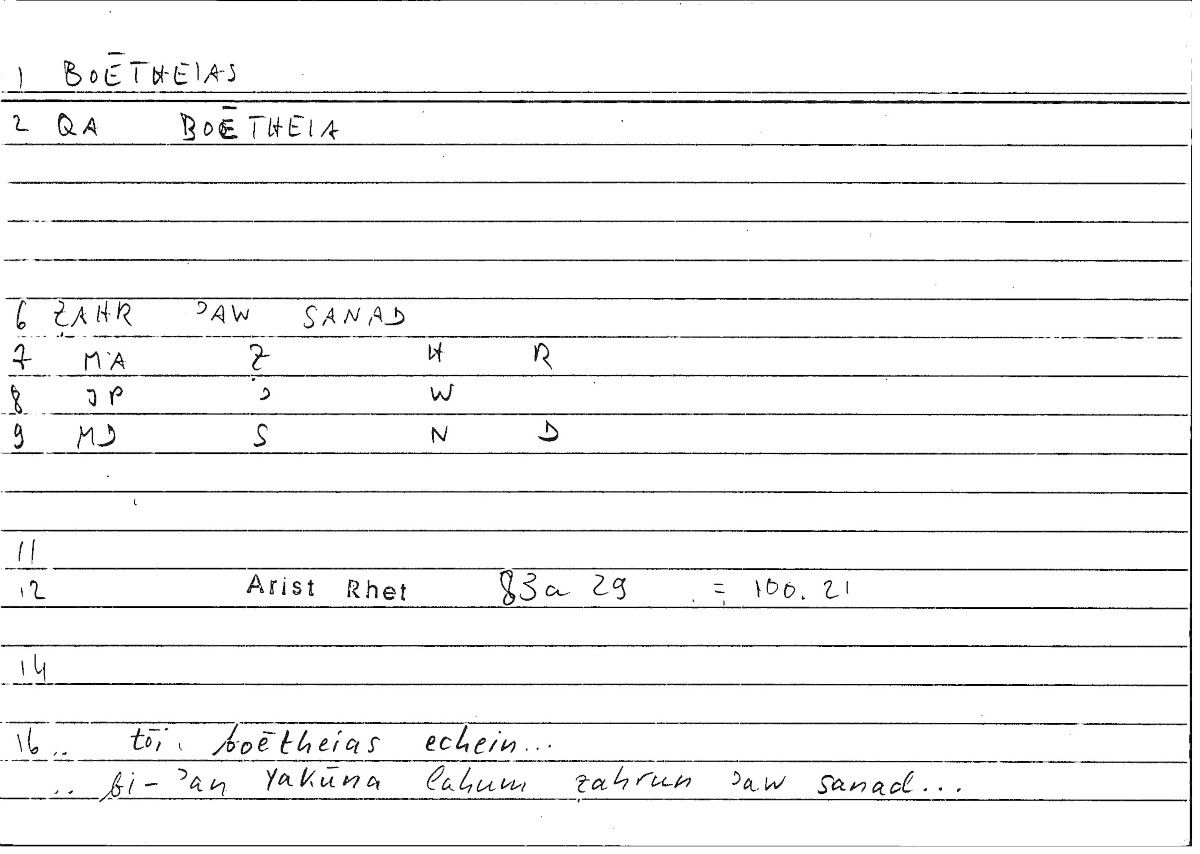 1 BOĒTHEIAS
2 QA BOĒTHEIA
6 ẒAHR ʾAW SANAD
7 MA Ẓ H R
8 JP ʾ W
9 MD S N D
11
12 Arist Rhet 83a 29 = 100.21
14
16 .. tōi boētheias echein...
.. bi-ʾan yakūna lahum zahrun ʾaw sanad...